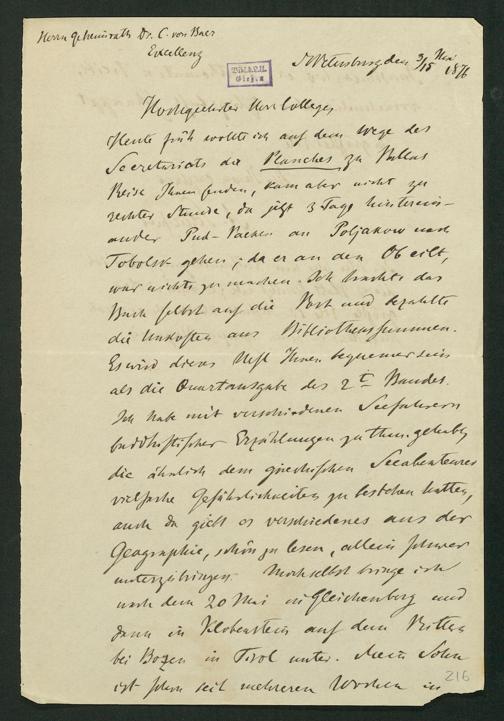 Herrn Geheimrath Dr. C. von Baer
Excellenz
St Petersburg den 3/15 Mai 1876
Hochgeehrter Herr College,
Heute früh wollte ich auf dem Wege des
Secretariats die Planches zu Pallas
Reise Ihnen senden, kam aber nicht zu
rechter Stunde, da jetzt 3 Tage hinterein-
ander Pud-Packen an Poljakow nach
Tobolsk gehen; da er an den Ob eilt,
war nichts zu machen. Ich brachte das
Buch selbst auf die Post und bezahlte
die Unkosten aus Bibliothekssummen.
Es wird dieses Heft Ihnen bequemer sein
als die Quartausgabe des 2t Bandes.
Ich habe mit verschiedenen Seefahrern
buddhistischer Erzählungen zu thun gehabt,
die ähnlich dem griechischen Seeabenteurer
vielfache Gefährlichkeiten zu bestehen hatten,
auch da giebt es verschiedenes aus der
Geographie, schön zu lesen, allein schwer
unterzubringen. Mich selbst bringe ich
nach dem 20 Mai in Gleichenberg und
dann in Klobenstein auf dem Ritten
bei Bozen in Tirol unter. Mein Sohn
ist schon seit mehreren Wochen in
216